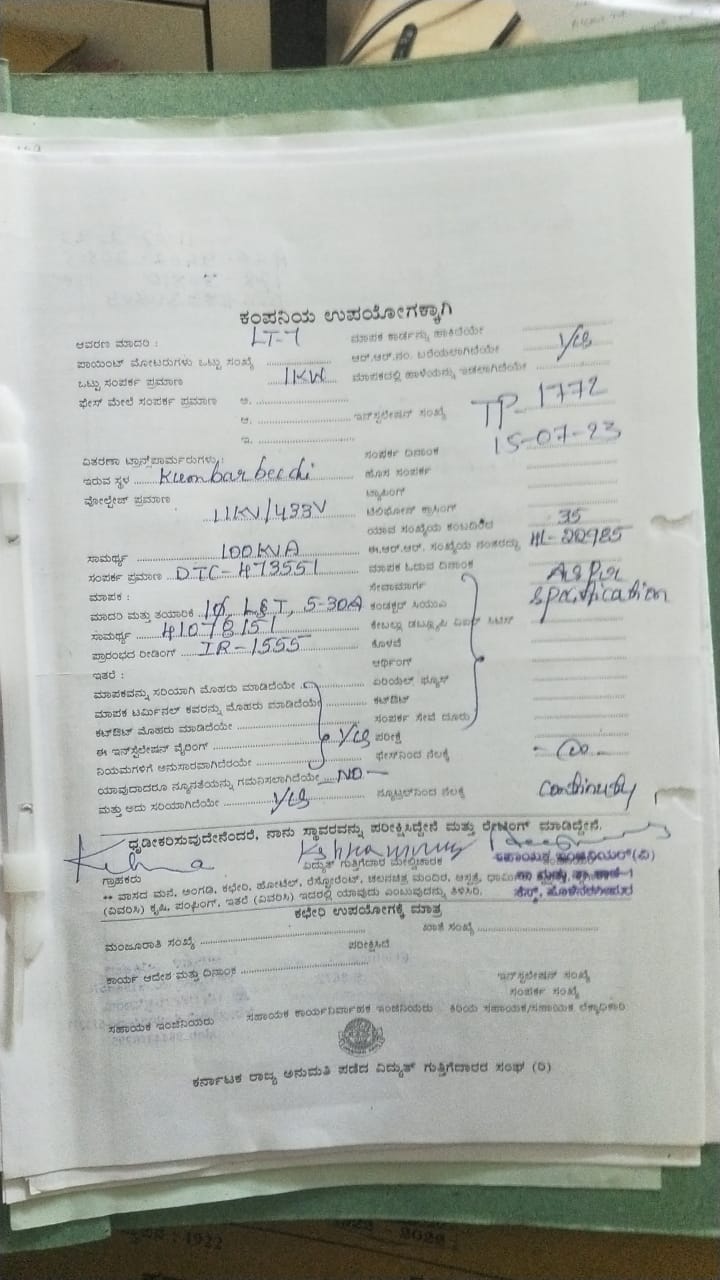 ಕಂಪನಿಯ ಉಪಯೋಗಕ್ಕಾಗಿ
ಆವರಣ ಮಾದರಿ : LT-7 ಮಾಪಕ ಕಾರ್ಡನ್ನು ಹಾಕಿದೆಯೇ
ಪಾಯಿಂಟ್ ಮೋಟರುಗಳು ಒಟ್ಟು ಸಂಖ್ಯೆ ಆರ್.ಆರ್.ನಂ. ಬರೆಯಲಾಗಿದೆಯೇ Yes
ಒಟ್ಟು ಸಂಪರ್ಕ ಪ್ರಮಾಣ 1KW ಮಾಪಕದಲ್ಲಿ ಹಾಳೆಯನ್ನು ಇಡಲಾಗಿದೆಯೇ
ಫೇಸ್ ಮೇಲೆ ಸಂಪರ್ಕ ಪ್ರಮಾಣ ಅ.
ಆ. ಇನ್‌ಸ್ಟಲೇಷನ್ ಸಂಖ್ಯೆ TP-1772
ಇ. 15-07-23
ವಿತರಣಾ ಟ್ರಾನ್ಸ್‌ಫಾರ್ಮರುಗಳು: ಸಂಪರ್ಕ ದಿನಾಂಕ
ಇರುವ ಸ್ಥಳ Kumbarbecdi ಹೊಸ ಸಂಪರ್ಕ
ವೋಲ್ಟೇಜ್ ಪ್ರಮಾಣ ಟ್ಯಾಪಿಂಗ್
11KV/433V ಟೆಲಿಫೋನ್ ಕ್ರಾಸಿಂಗ್
ಯಾವ ಸಂಖ್ಯೆಯ ಕಂಬದಿಂದ 35
ಸಾಮರ್ಥ್ಯ 100KVA ಈ.ಆರ್.ಆರ್. ಸಂಖ್ಯೆಯ ನಂತರದ್ದು HL-22985
ಸಂಪರ್ಕ ಪ್ರಮಾಣ DTC-473551 ಮಾಪಕ ಓದುವ ದಿನಾಂಕ
ಮಾಪಕ : ಸೇವಾಮಾರ್ಗ As per
ಮಾದರಿ ಮತ್ತು ತಯಾರಿಕೆ 1φ, L&T, 5-30A ಕಂಡಕ್ಟರ್ ಸಿಯುಎ specification
ಸಾಮರ್ಥ್ಯ 41078151
ಪ್ರಾರಂಭದ ರೀಡಿಂಗ್ IR-1555 ಕೊಳವೆ
ಇತರೆ : ಅರ್ಥಿಂಗ್
ಮಾಪಕವನ್ನು ಸರಿಯಾಗಿ ಮೊಹರು ಮಾಡಿದೆಯೇ ಏರಿಯಲ್ ಫ್ಯೂಸ್
ಮಾಪಕ ಟರ್ಮಿನಲ್ ಕವರನ್ನು ಮೊಹರು ಮಾಡಿದೆಯೇ ಕಟ್‌ಔಟ್
ಕಟ್‌ಔಟ್ ಮೊಹರು ಮಾಡಿದೆಯೇ ಸಂಪರ್ಕ ಸೇವೆ ದೂರು
ಈ ಇನ್‌ಸ್ಟಲೇಷನ್ ವೈರಿಂಗ್ Yes ಪರೀಕ್ಷೆ
ನಿಯಮಗಳಿಗೆ ಅನುಸಾರವಾಗಿದೆಯೇ ಫೇಸ್‌ನಿಂದ ನೆಲಕ್ಕೆ
ಯಾವುದಾದರೂ ನ್ಯೂನತೆಯನ್ನು ಗಮನಿಸಲಾಗಿದೆಯೇ NO
ಮತ್ತು ಅದು ಸರಿಯಾಗಿದೆಯೇ Yes ನ್ಯೂಟ್ರಲ್‌ನಿಂದ ನೆಲಕ್ಕೆ continuity
ಧೃಡೀಕರಿಸುವುದೇನೆಂದರೆ, ನಾನು ಸ್ಥಾವರವನ್ನು ಪರೀಕ್ಷಿಸಿದ್ದೇನೆ ಮತ್ತು ರೇಟಿಂಗ್ ಮಾಡಿದ್ದೇನೆ.
ಗ್ರಾಹಕರು ವಿದ್ಯುತ್ ಗುತ್ತಿಗೆದಾರ ಮೇಲ್ವಿಚಾರಕ ಸಹಾಯಕ ಇಂಜಿನಿಯರ್(ವಿ)
** ವಾಸದ ಮನೆ, ಅಂಗಡಿ, ಕಛೇರಿ, ಹೋಟೆಲ್, ರೆಸ್ಟೋರೆಂಟ್, ಚಲನಚಿತ್ರ ಮಂದಿರ, ಆಸ್ಪತ್ರೆ,
(ವಿವರಿಸಿ) ಕೃಷಿ, ಪಂಫಿಂಗ್, ಇತರೆ (ವಿವರಿಸಿ) ಇದರಲ್ಲಿ ಯಾವುದು ಎಂಬುವುದನ್ನು ತಿಳಿಸಿರಿ.
ಕಛೇರಿ ಉಪಯೋಗಕ್ಕೆ ಮಾತ್ರ
ಮಂಜೂರಾತಿ ಸಂಖ್ಯೆ ಖಾತೆ ಸಂಖ್ಯೆ
ಪರೀಕ್ಷಿಸಿದೆ
ಕಾರ್ಯ ಆದೇಶ ಮತ್ತು ದಿನಾಂಕ ಇನ್‌ಸ್ಟಲೇಷನ್ ಸಂಖ್ಯೆ
ಸಂಪರ್ಕ ಸಂಖ್ಯೆ
ಸಹಾಯಕ ಇಂಜಿನಿಯರು ಸಹಾಯಕ ಕಾರ್ಯನಿರ್ವಾಹಕ ಇಂಜಿನಿಯರು ಕಿರಿಯ ಸಹಾಯಕ/ಸಹಾಯಕ ಲೆಕ್ಕಾಧಿಕಾರಿ
ಕರ್ನಾಟಕ ರಾಜ್ಯ ಅನುಮತಿ ಪಡೆದ ವಿದ್ಯುತ್ ಗುತ್ತಿಗೆದಾರರ ಸಂಘ (ರಿ)